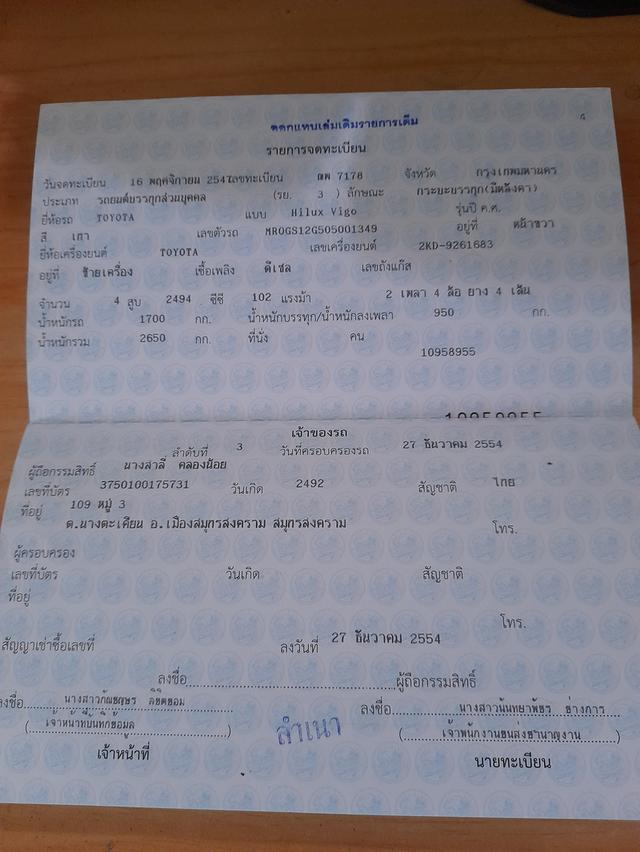 ออกแทนเล่มเดิมรายการเต็ม
รายการจดทะเบียน
วันจดทะเบียน 16 พฤศจิกายน 2547 เลขทะเบียน 7178 จังหวัด กรุงเทพมหานคร
ประเภท รถยนต์บรรทุกส่วนบุคคล (รย. 3 ) ลักษณะ กระบะบรรทุก(มีหลังคา)
ยี่ห้อรถ TOYOTA แบบ Hilux Vigo รุ่นปี ค.ศ.
สี เทา เลขตัวรถ MR0GS12G505001349 อยู่ที่ หน้าขวา
ยี่ห้อเครื่องยนต์ TOYOTA เลขเครื่องยนต์ 2KD-9261683
อยู่ที่ ซ้ายเครื่อง เชื้อเพลิง ดีเซล เลขถังแก๊ส
จำนวน 4 สูบ 2494 ซีซี 102 แรงม้า 2 เพลา 4 ล้อ ยาง 4 เส้น
น้ำหนักรถ 1700 กก. น้ำหนักบรรทุก/น้ำหนักลงเพลา 950 กก.
น้ำหนักรวม 2650 กก. ที่นั่ง คน
10958955
เจ้าของรถ
ลำดับที่ 3 วันที่ครอบครองรถ 27 ธันวาคม 2554
ผู้ถือกรรมสิทธิ์ นางสาลี่ คลองน้อย
เลขที่บัตร 3750100175731 วันเกิด 2492 สัญชาติ ไทย
ที่อยู่ 109 หมู่ 3
ต.นางตะเคียน อ.เมืองสมุทรสงคราม สมุทรสงคราม
โทร.
ผู้ครอบครอง
เลขที่บัตร วันเกิด สัญชาติ
ที่อยู่
โทร.
สัญญาเช่าซื้อเลขที่ ลงวันที่ 27 ธันวาคม 2554
ลงชื่อ ผู้ถือกรรมสิทธิ์
ลงชื่อ นางสาว ลงชื่อ นางสาวนันทยาพัชร ช่างการ
(เจ้าหน้าที่บันทึกข้อมูล) สำเนา (เจ้าพนักงานขนส่งชำนาญงาน)
เจ้าหน้าที่ นายทะเบียน